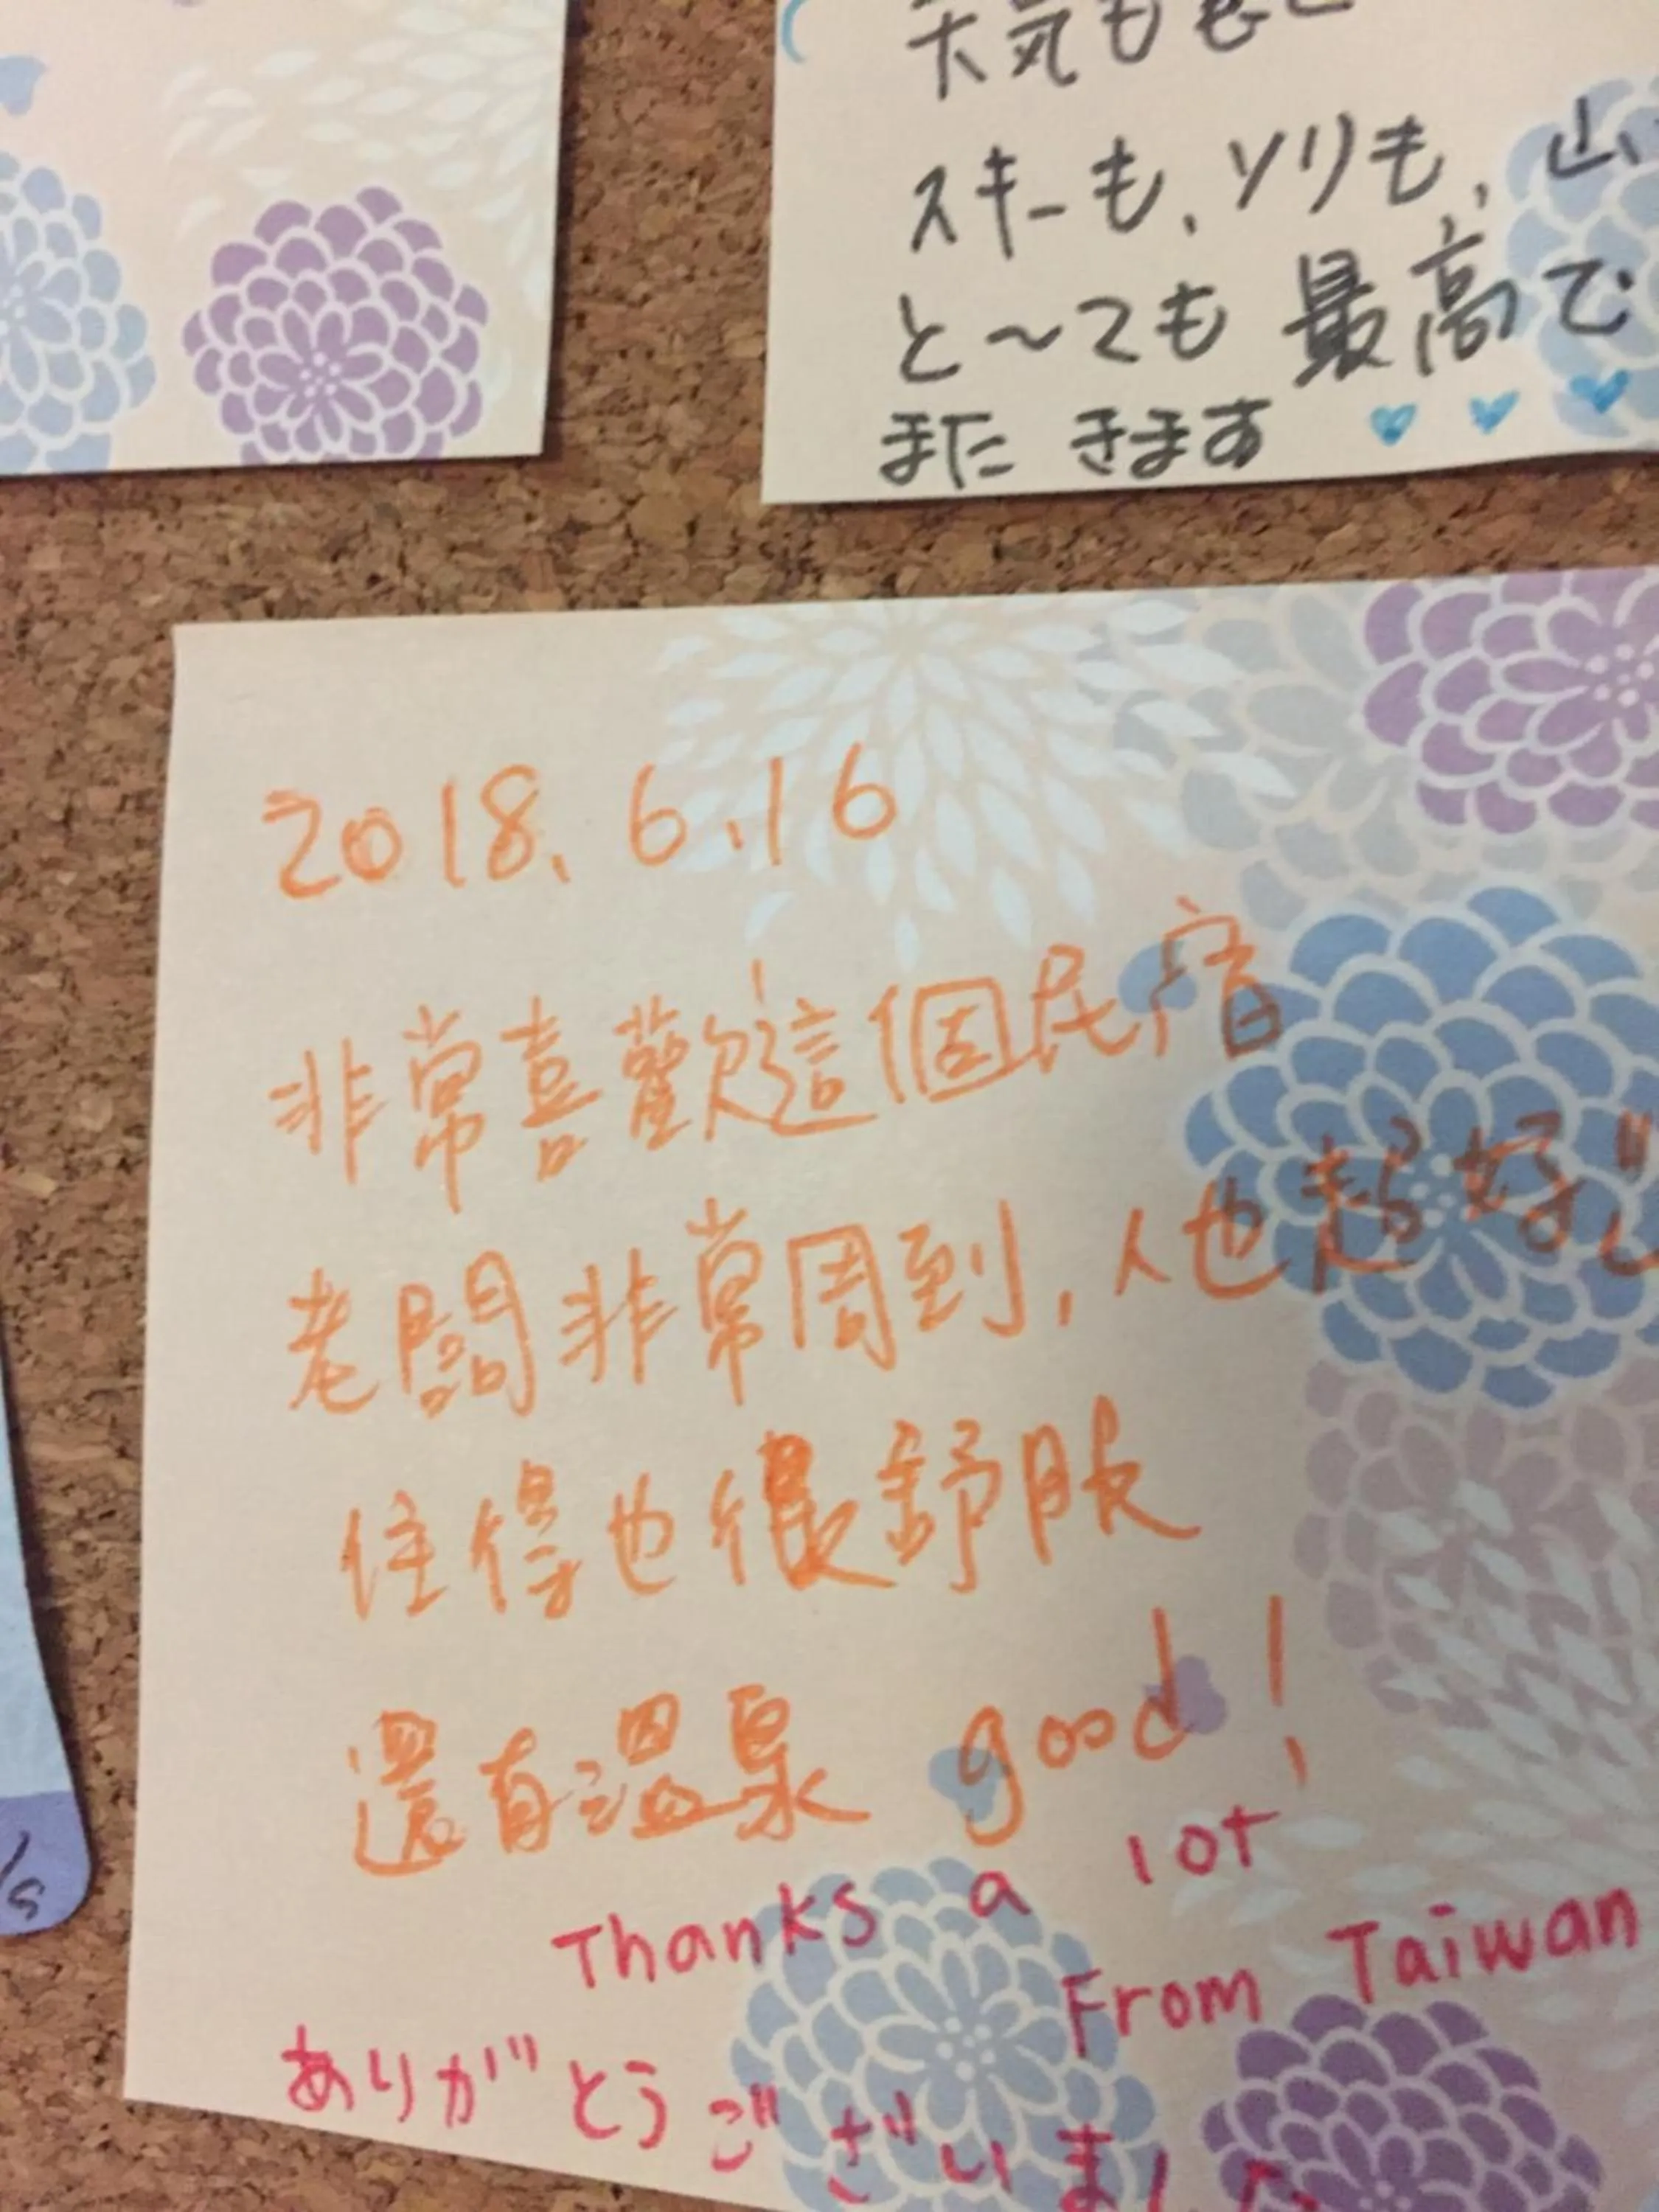 天気も
スキーも、ソリも、山
と〜ても 最高で
また きます
2018.6.16
非常喜歡這個民宿
老闆非常周到,人也超好
住得也很舒服
還有溫泉 good!
Thanks a lot
From Taiwan
ありがとうございました